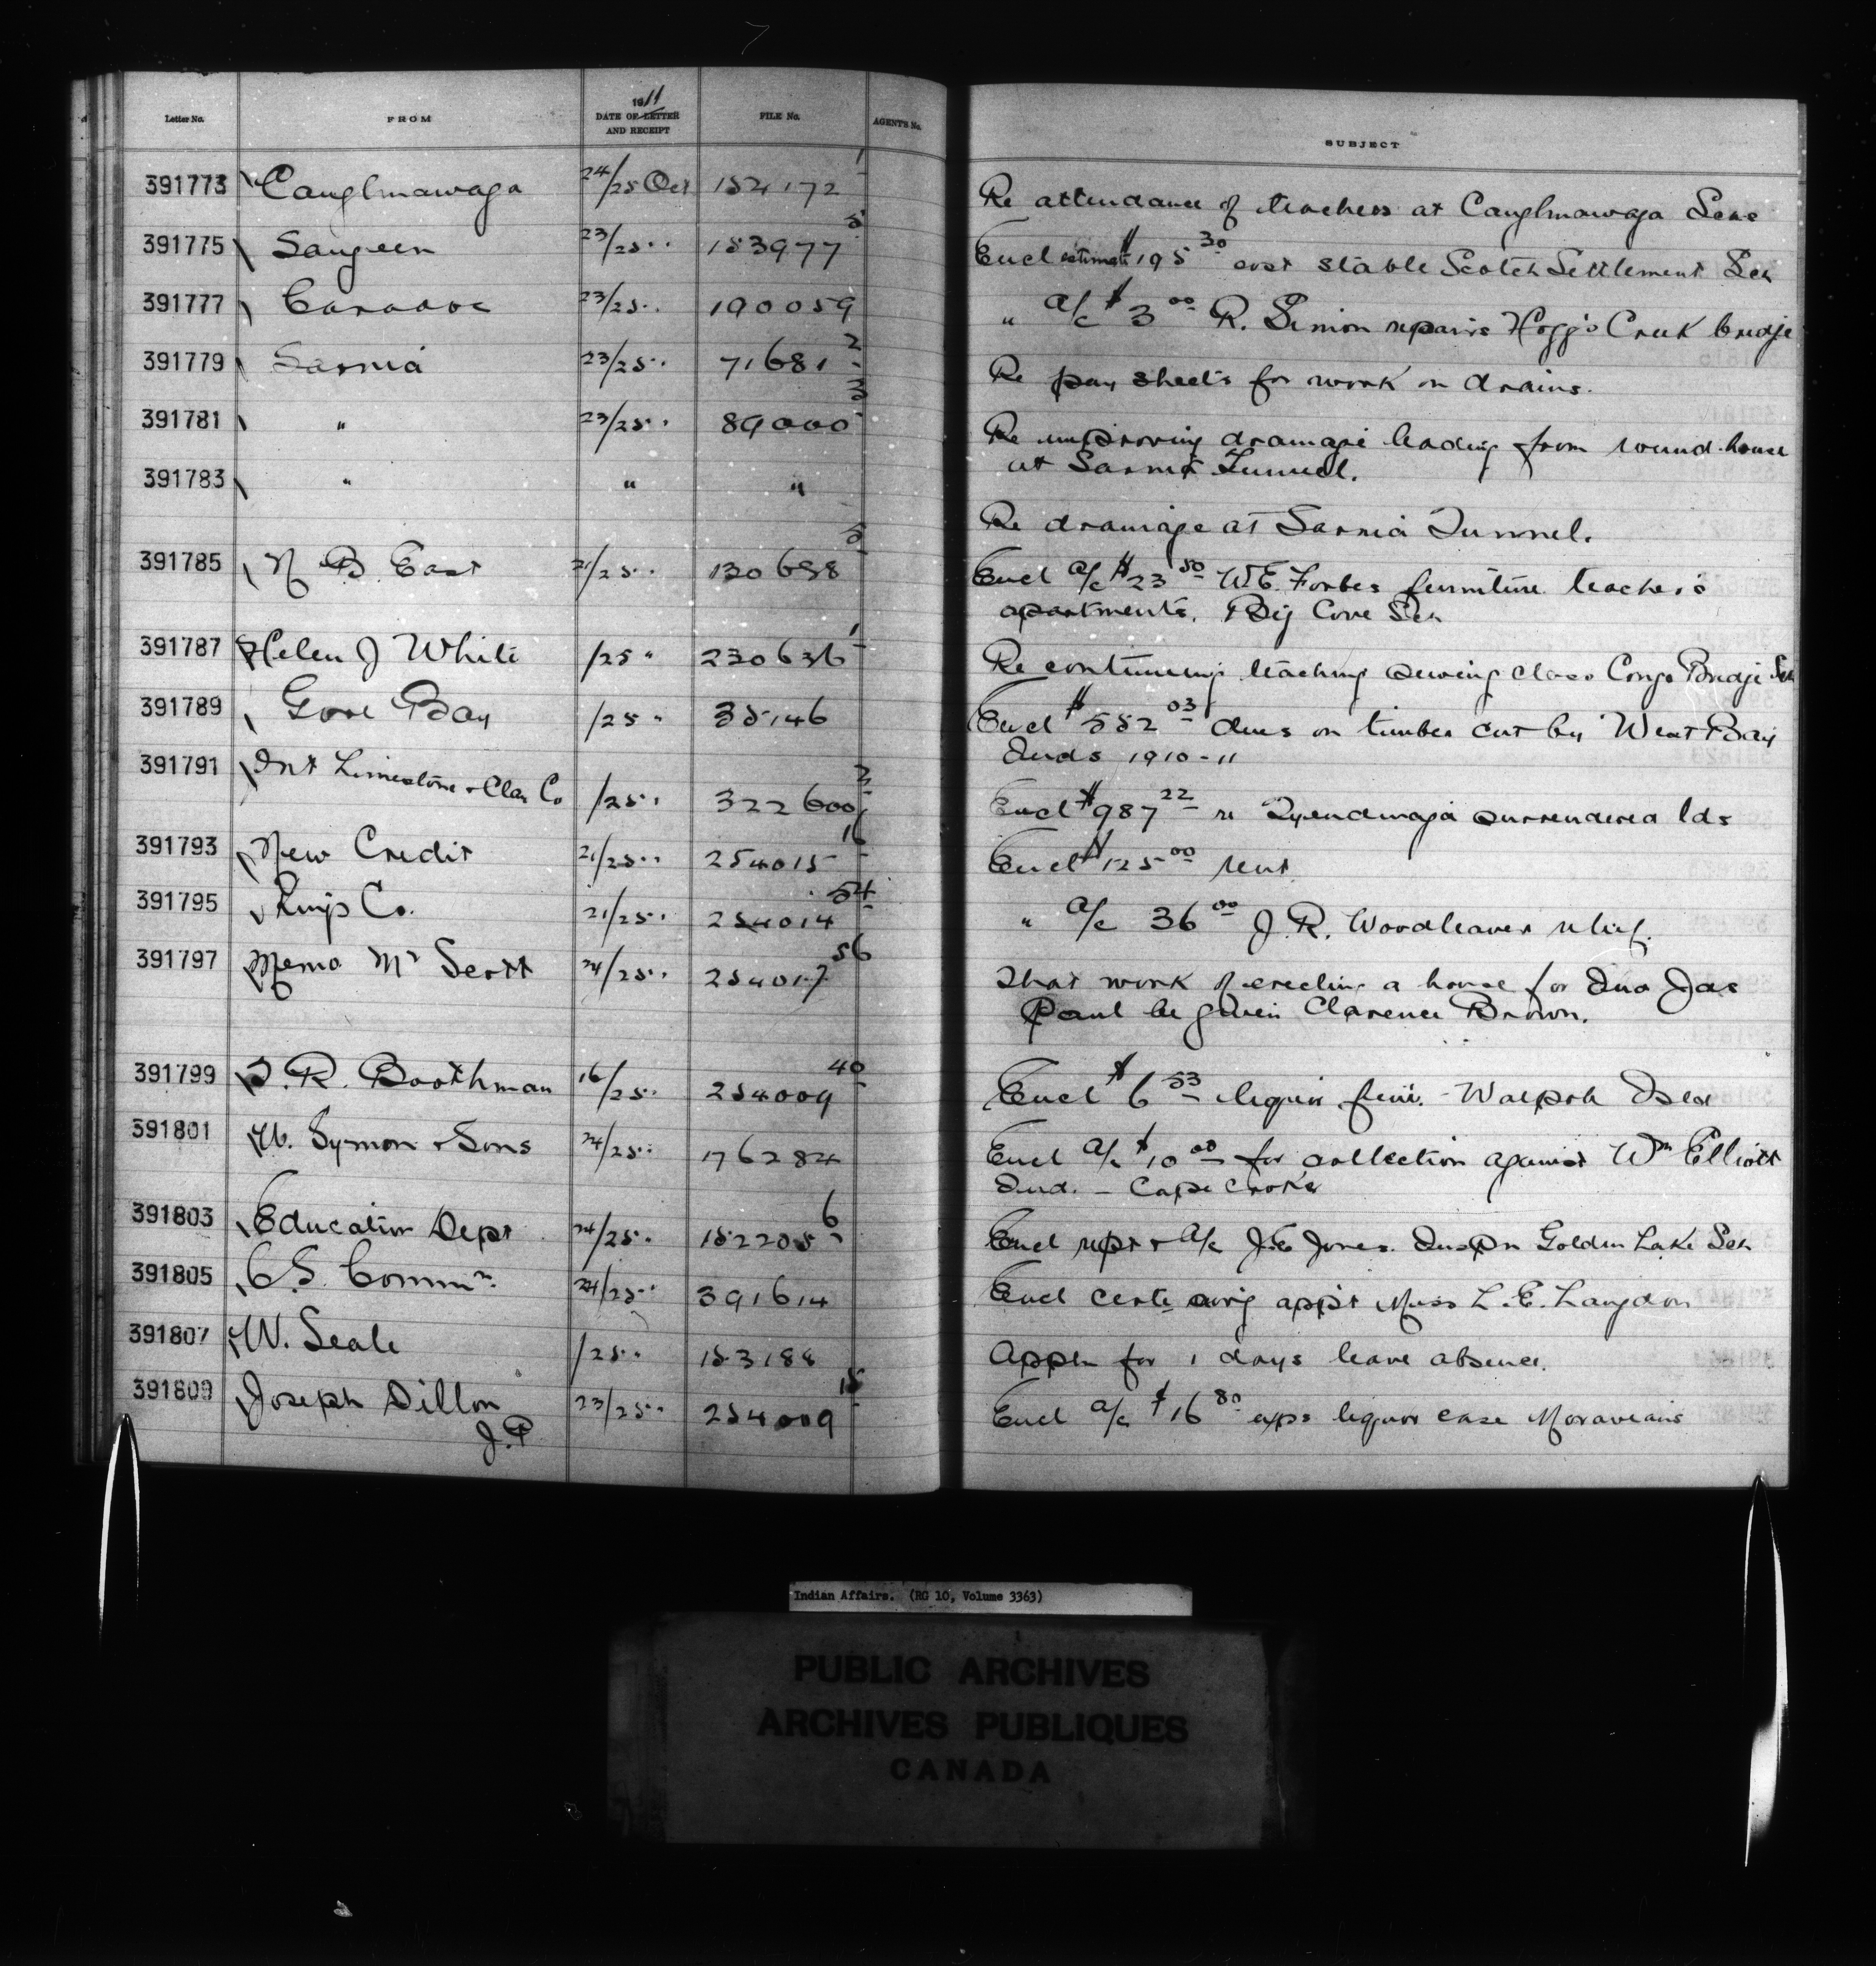 Letter No. FROM 1911 DATE OF LETTER AND RECEIPT FILE No. AGENT'S No. SUBJECT
391773 Caughnawaga 24/25 Oct 152172 1 Re attendance of teachers at Caughnawaga Schs
391775 Saugeen 23/25 " 153977 5 Encl estimate $195 30 cost stable Scotch Settlement Sch
391777 Caradoc 23/25 " 190059 " a/c $3 00 R. Simon repairs Hogg's Creek bridge
391779 Sarnia 23/25 " 71681 2 Re pay sheets for work on drains.
391781 " 23/25 " 89000 3 Re improving drainage leading from round-house
at Sarnia Tunnel.
391783 " " " Re drainage at Sarnia Tunnel.
391785 N B East 21/25 " 130698 5 Encl a/c $23 50 W.E. Forbes furniture teacher's
apartments. Big Cove Sch
391787 Helen J White /25 " 230636 1 Re continuing teaching sewing class Congo Bridge Sch
391789 Gore Bay /25 " 35146 Encl $552 03 dues on timber cut by West Bay
Inds 1910-11
391791 Int Limestone & Clay Co /25 " 322600 Encl $987 22 re Tyendinaga surrendered lds
391793 New Credit 21/25 " 254015 16 Encl $125 00 rent
391795 Kings Co. 21/25 " 254014 54 " a/c 36 00 J. R. Woodleaver relief.
391797 Memo Mr Scott 24/25 " 254017 56 That work of erecting a house for Ind Jas
Paul be given Clarence Brown.
391799 T. R. Boothman 16/25 " 254009 40 Encl $6 53 liquor fine. - Walpole Isld
391801 W. Symon & Sons 24/25 " 176284 Encl a/c $10 00 for collection against Wm Elliott
Ind. - Cape Croker
391803 Education Dept 24/25 " 152205 6 Encl rept & a/c J.E. Jones. Inspn Golden Lake Sch
391805 C S. Commn. 24/25 " 391614 Encl certe apprt Miss L. E. Langdon
391807 W. Seale /25 " 153188 Appln for 1 days leave absence.
391809 Joseph Dillon 23/25 " 254009 15 Encl a/c $16 80 exps liquor case Moravians
J.P
Indian Affairs. (RG 10, Volume 3363)
PUBLIC ARCHIVES
ARCHIVES PUBLIQUES
CANADA